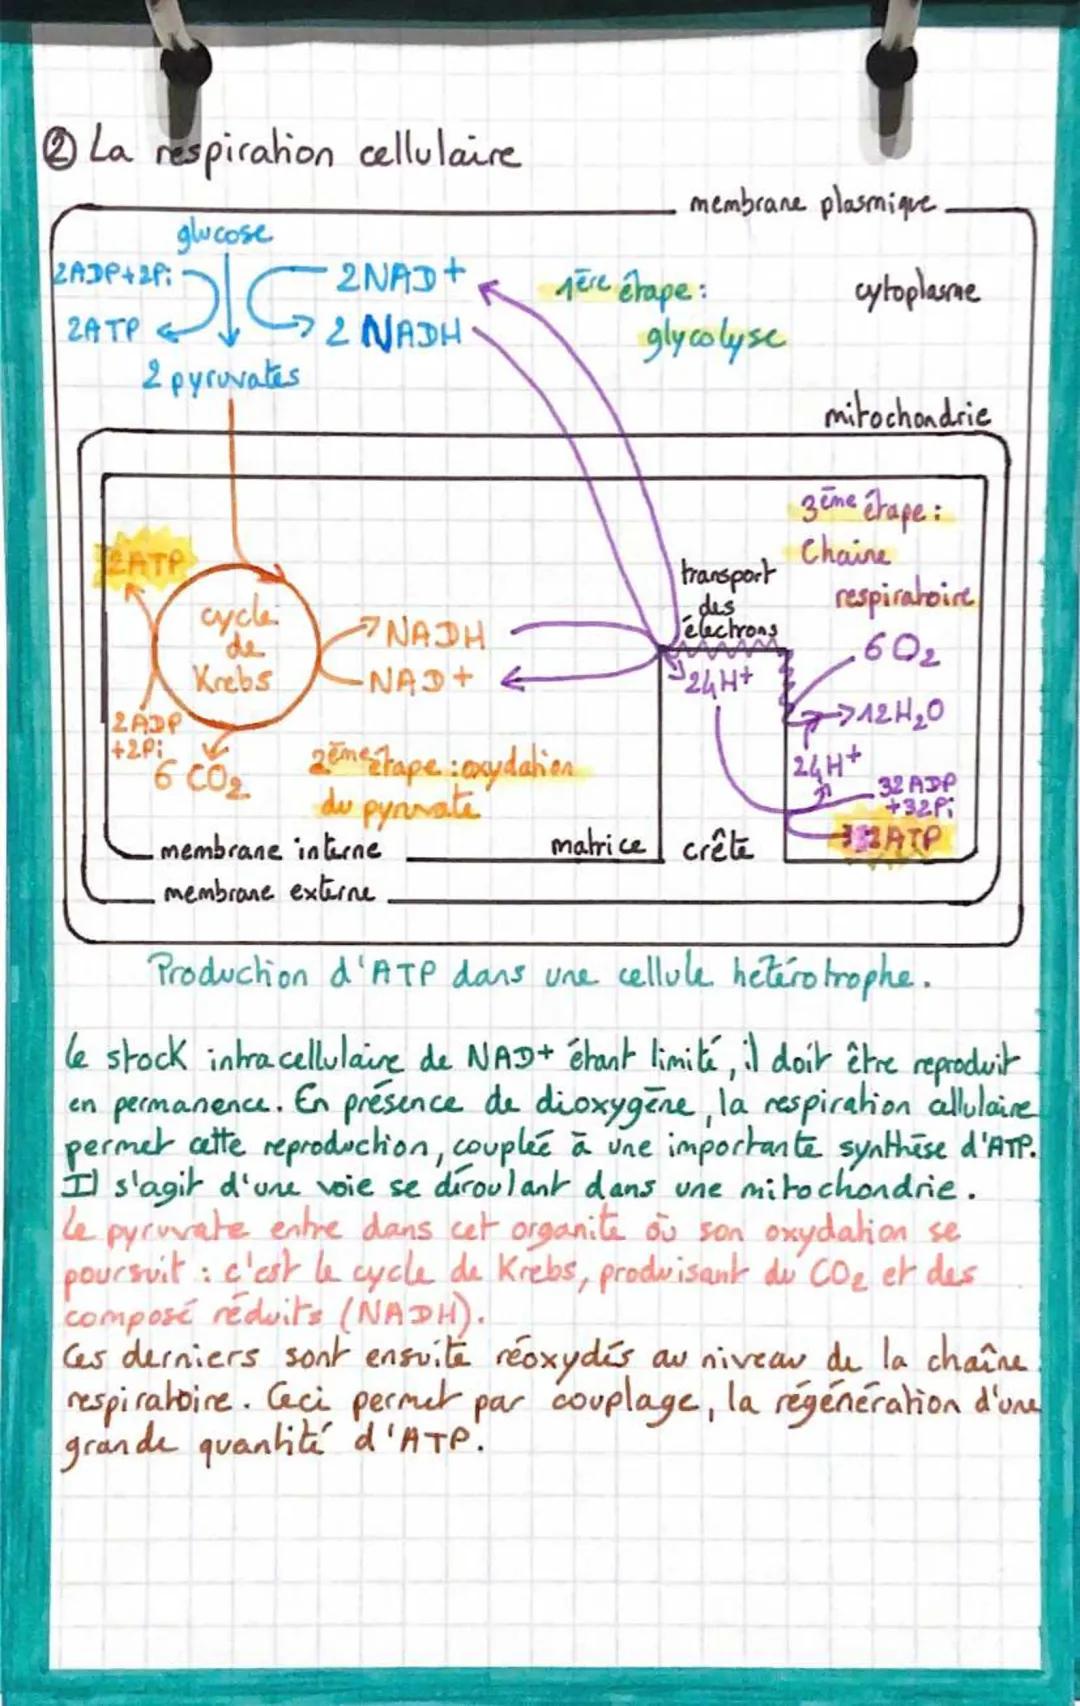 ② La respiration cellulaire
membrane plasmique
glucose
2ADP+2Pi
2NAD+
1ère étape :
cytoplasme
2ATP
2 NADH
glycolyse
2 pyruvates
mitochondrie
3ème étape :
Chaine
respiratoire
2ATP
transport
des
électrons
cycle
de
Krebs
NADH
NAD+
6 O2
24H+
12H2O
2ADP
+2Pi
6 CO2
2ème étape : oxydation
du pyruvate
24H+
32 ADP
+32Pi
32ATP
membrane interne
matrice
crête
membrane externe
Production d'ATP dans une cellule hétérotrophe.
Le stock intracellulaire de NAD+ étant limité, il doit être reproduit
en permanence. En présence de dioxygène, la respiration cellulaire
permet cette reproduction, couplée à une importante synthèse d'ATP.
Il s'agit d'une voie se déroulant dans une mitochondrie.
Le pyruvate entre dans cet organite où son oxydation se
poursuit : c'est le cycle de Krebs, produisant du CO2 et des
composé réduits (NADH).
Ces derniers sont ensuite réoxydés au niveau de la chaîne
respiratoire. Ceci permet par couplage, la régénération d'une
grande quantité d'ATP.